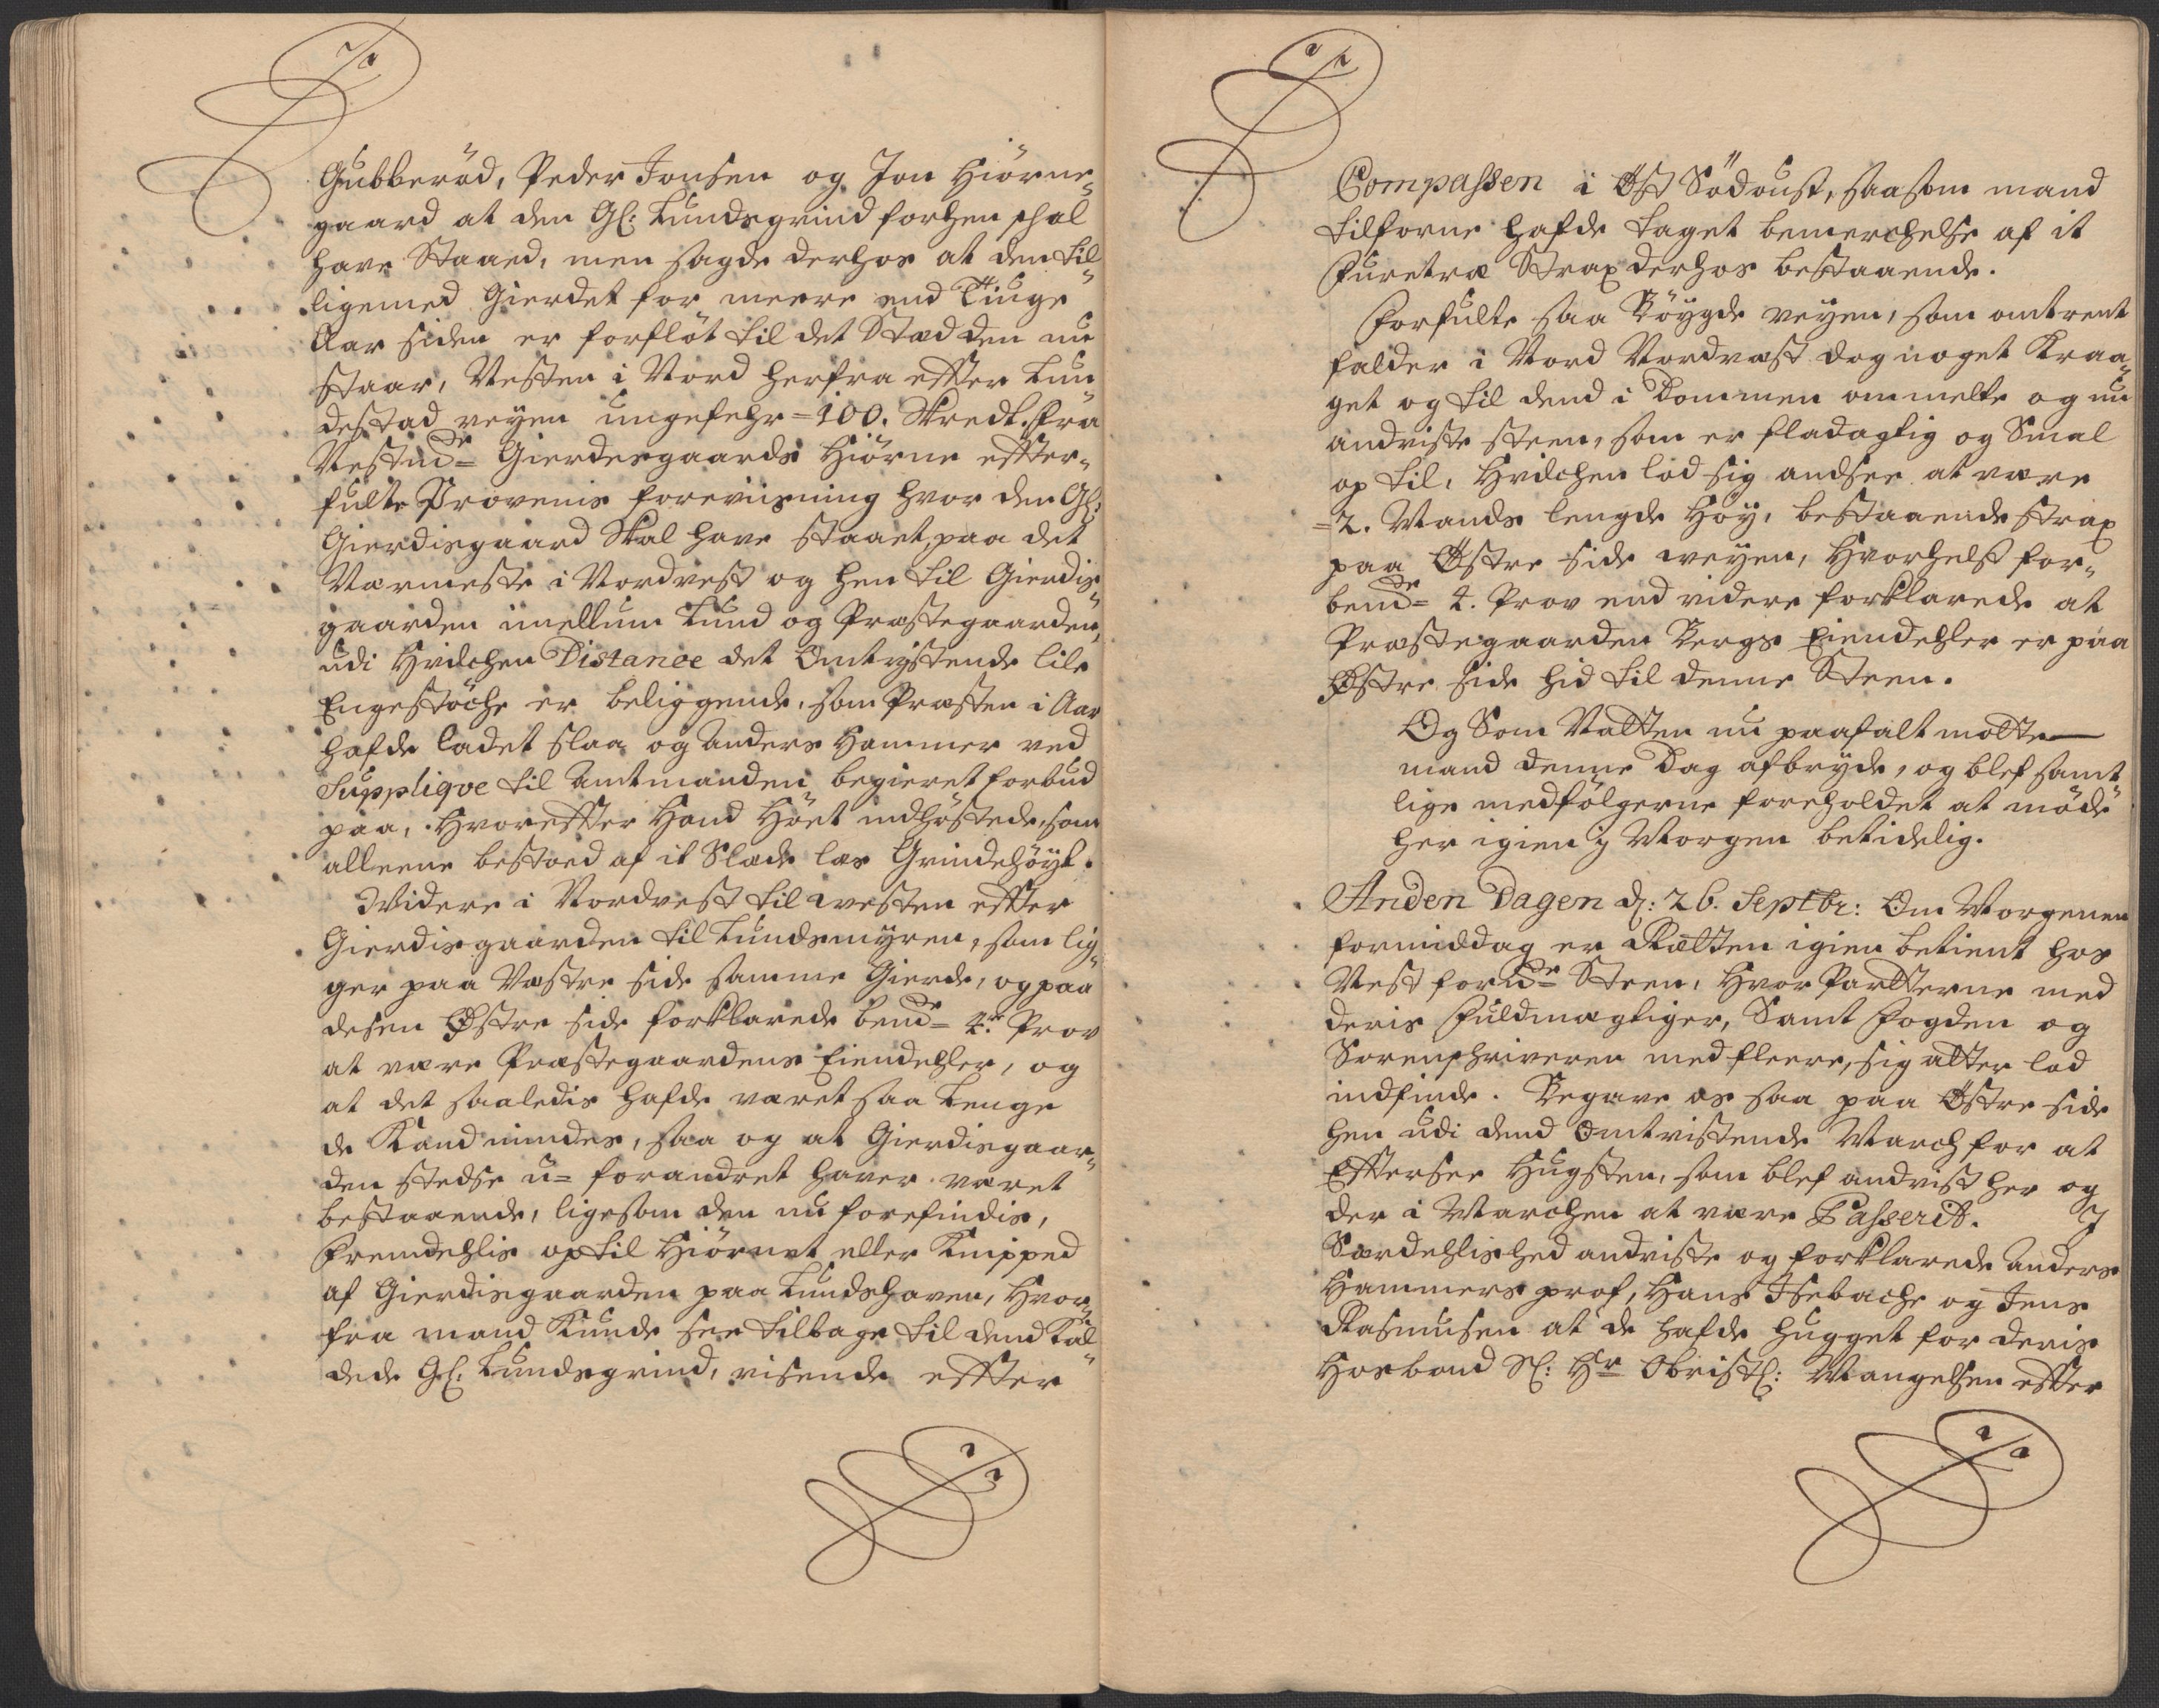 Gubberöd, Peder Jonsen og Jon Hiörne„
gaard at den Gl: Lundsgrind forhen schal
have Staaed, men sagde derhos at den til„
ligemed Gierdet for meere end Tiuge
Aar siden er forflöt til det Stæd den nu
staar, Nesten i Nord herfra effter Lun„
destad veyen ungefehr =100. Skredt. Fra
Nestnd= Gierdesgaards Hiörne effter„
fulte Provenis foreviisning hvor den Gl:
Gierdisgaard Skal have staaet, paa det
Nærmeste i Nordvest og hen til Gierdis„
gaarden imellum Lund og Præstegaarden,
udi Hvilchen Distance det Omtvistende lile
Engestöche er beliggende, som Præsten i Aar
hafde ladet slaa og Anders Hammer ved
Supplique til Amtmanden begieret forbud
paa, Hvoreffter Hand Höet indhöstede, som
alleene bestoed af it Slæde læs Grindehöyt.
Widere i Nordvest til westen effter
Gierdisgaarden til Lundsmyren, som lig„
ger paa Væstre side samme Gierde, og paa
desen Østre side forklarede bemd= 4re Prov
at være Præstegaardens Eiendehler, og
at det saaledis hafde været saa Lenge
de Kand mindes, saa og at Gierdisgaar„
den stedse u= forandret haver været
bestaaende, ligesom den nu forefindis,
Fremdehlis op til Hiörnet eller Knipped
af Gierdisgaarden paa Lundshaven, Hvor„
fra mand Kunde see tilbage til dend Kal„
dede Gl: Lundsgrind, visende effter
Compassen i Øst Südoust, saasom mand
tilforne hafde taget bemerchelse af it
Furetræ Strax derhos bestaaende.
Forfulte saa Böygde veyen, som omtrent
falder i Nord Nordvæst dog noget Kraa„
get og til dend i Dommen ommelte og nu
andviste steen, som er fladagtig og Smal
op til, Hvilchen lod sig andsee at være
=2. Mands lengde Höy, bestaaende strax
paa Østre side weyen, Hvorhelst for„
bemde= 4. Prov end videre forklarede at
Præstegaarden Bergs Eiendehler er paa
Østre side hid til denne Steen.
Og Som Natten nu paafalt motte
mand denne Dag afbryde, og blef samt„
lige medfölgerne foreholdet at möde
her igien i Morgen betidelig.
Anden Dagen d: 26. Septbr: Om Morgenen
formiddag er Rætten igien betient hos
Nest forde= Steen, Hvor Partterne med
deris Fuldmægtiger, Samt Fogden og
Sorenschriveren med fleere, sig atter lod
indfinde. Begave os saa paa Østre side
hen udi dend Omtvistende March for at
Efftersee Hugsten, som blef andvist her og
der i Marchen at være Passerit. J
Særdehlished andviste og forklarede Anders
Hammers prof, Hans Isebache og Jens
Rasmusen at de hafde hugget for deris
Hosbond Sl: Hr Obristl: Mangelsen effter